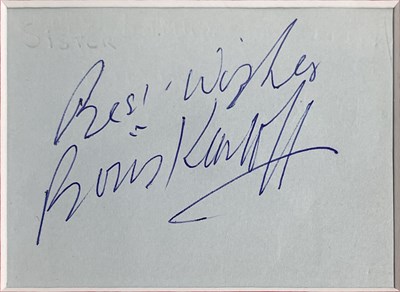 Best Wishes
Boris Karloff